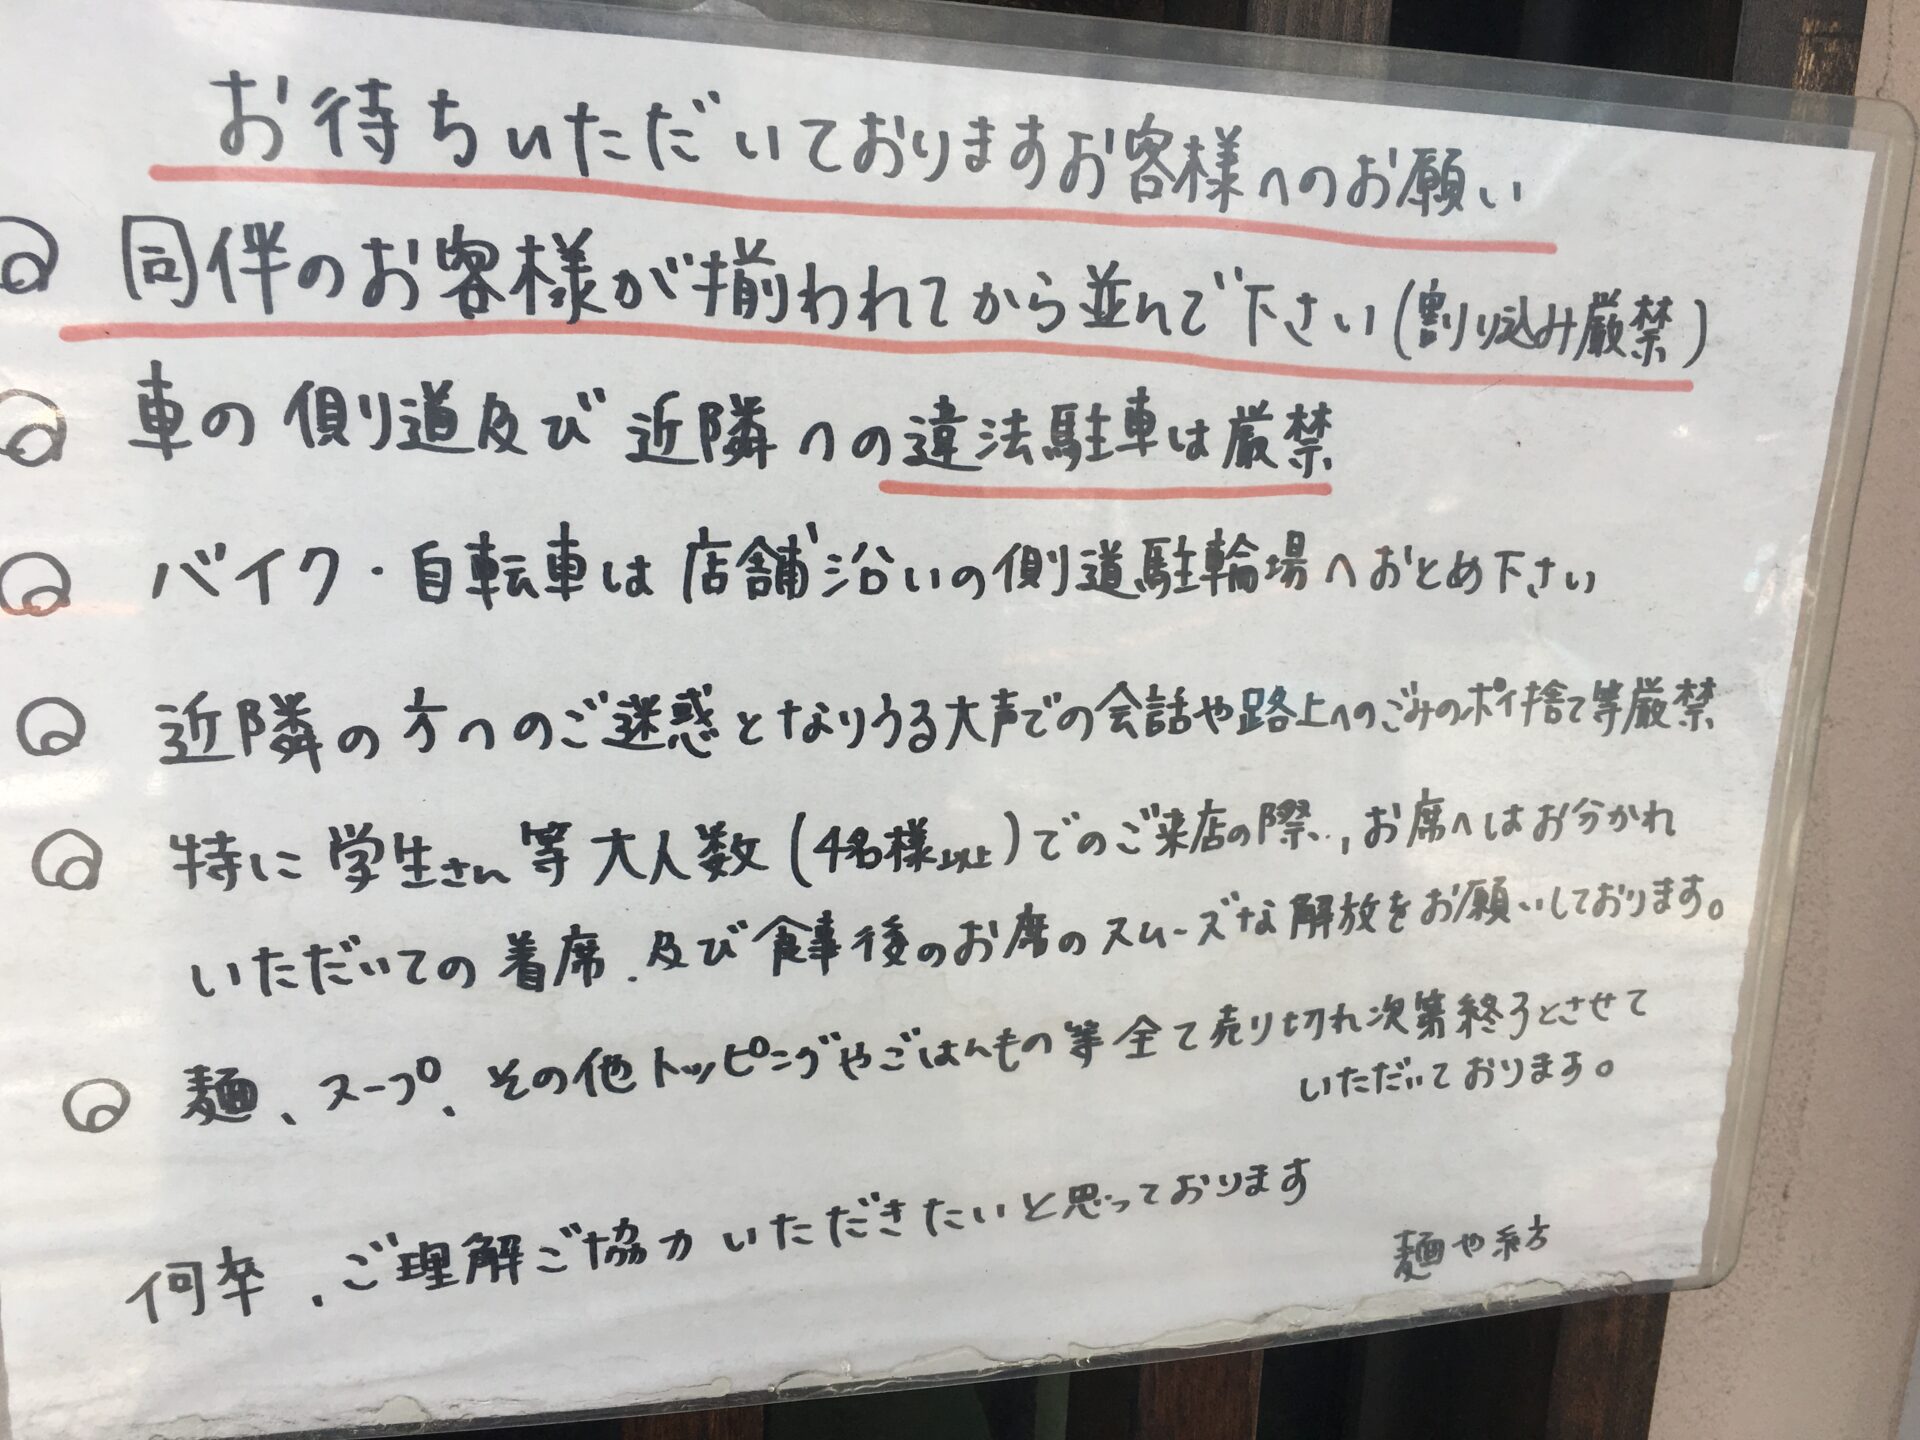 お待ちいただいておりますお客様へのお願い
同伴のお客様が揃われてから並んで下さい(割り込み厳禁)
車の側道及び近隣への違法駐車は厳禁
バイク・自転車は店舗沿いの側道駐輪場へおとめ下さい
近隣の方へのご迷惑となりうる大声での会話や路上へのごみのポイ捨て等厳禁
特に学生さん等大人数(4名様以上)でのご来店の際、お席へはお分かれ
いただいての着席、及び食事後のお席のスムーズな解放をお願いしております。
麺、スープ、その他トッピングやごはんもの等全て売り切れ次第終了とさせて
いただいております。
何卒、ご理解ご協力いただきたいと思っております
麺や緒方